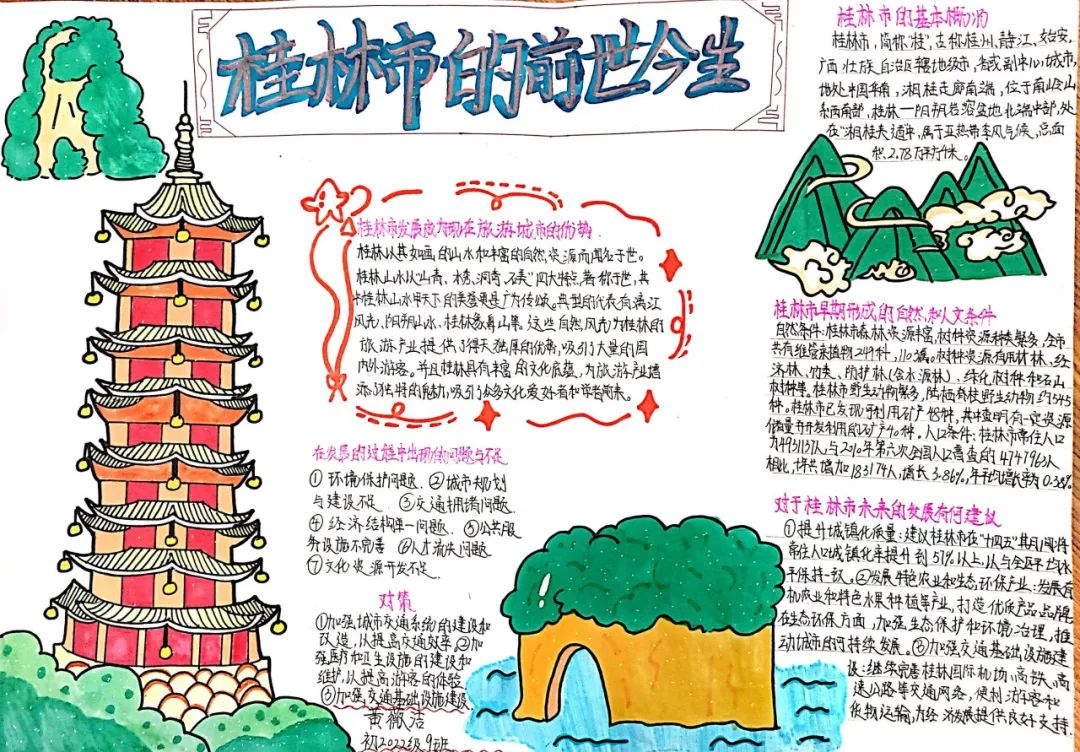 桂林市的前世今生
桂林市的基本概况
桂林市，简称"桂"，古称桂州、静江、始安，
广西壮族自治区辖地级市，
地处中国华南，湘桂走廊南端，位于南岭山
系西南部，桂林—阳朔岩溶盆地北端中部，处
在"湘桂夹道"中，属于亚热带季风气候，总面
积2.78万平方千米。
桂林市发展成为现在旅游城市的优势
桂林以其如画的山水和丰富的自然资源而闻名于世。
桂林山水以"山青、水秀、洞奇、石美"四大特点著称于世，其
中桂林山水甲天下的美誉更是广为传颂。典型的代表有漓江
风光，阳朔山水，桂林象鼻山等，这些自然风光为桂林的
旅游产业提供了得天独厚的优势，吸引了大量的国
内外游客。并且桂林具有丰富的文化底蕴，为旅游产业增
添了独特的魅力，吸引了众多文化爱好者和学者前来。
桂林市早期形成的自然和人文条件
自然条件：桂林市森林资源丰富，树种资源种类繁多，全市
共有维管束植物249科，
树种资源有用材林、经
济林、竹类、防护林（含水源林）、绿化树种和石山
树种等。桂林市野生动物繁多，陆栖脊椎野生动物约545
种。桂林市已发现可利用矿产48种，其中查明有一定资源
储量并开发利用的矿产40种。人口条件：桂林市常住人口
为4931137人，与2010年第六次全国人口普查的4747963人
相比，十年共增加183174人，增长3.86%，年平均增长率为0.38%
在发展的过程中出现的问题与不足
①环境保护问题。②城市规划
与建设不足。③交通拥堵问题。
④经济结构单一问题。⑤公共服
务设施不完善 ⑥人才流失问题
⑦文化资源开发不足。
对策
①加强城市交通系统的建设和
改造，以提高交通效率。②加
强医疗和卫生设施的建设和
维护，以提高游客的体验
③加强交通基础设施建设
黄薇洁
初2022级9班
对于桂林市未来的发展有何建议
①提升城镇化质量：建议桂林市在"十四五"期间将
常住人口城镇化率提升到51%以上，从与全区平均水
平保持一致。②发展特色农业和生态环保产业：发展有
机农业和特色水果种植等产业，打造优质产品品牌
在生态环保方面，加强生态保护和环境治理，推
动城市的可持续发展。③加强交通基础设施建
设：继续完善桂林国际机场、高铁、高
速公路等交通网络，便利游客和
货物运输，为经济发展提供良好支持